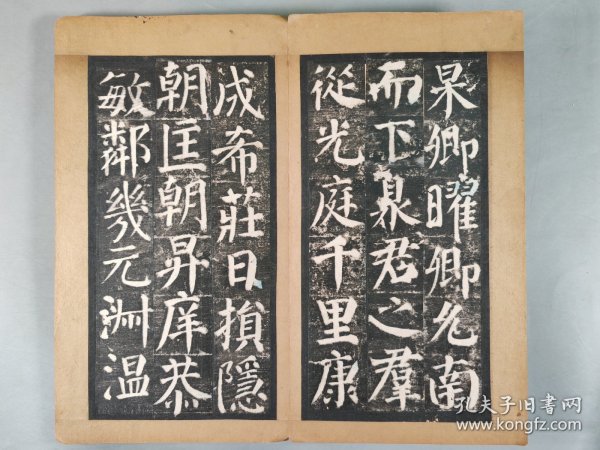 杲卿曜卿允南
而下息君之羣
從光庭千里康
成希莊日損隱
朝匡朝昇庠恭
敏鄰幾元淵温
孔夫子旧書网
www.kongfz.com